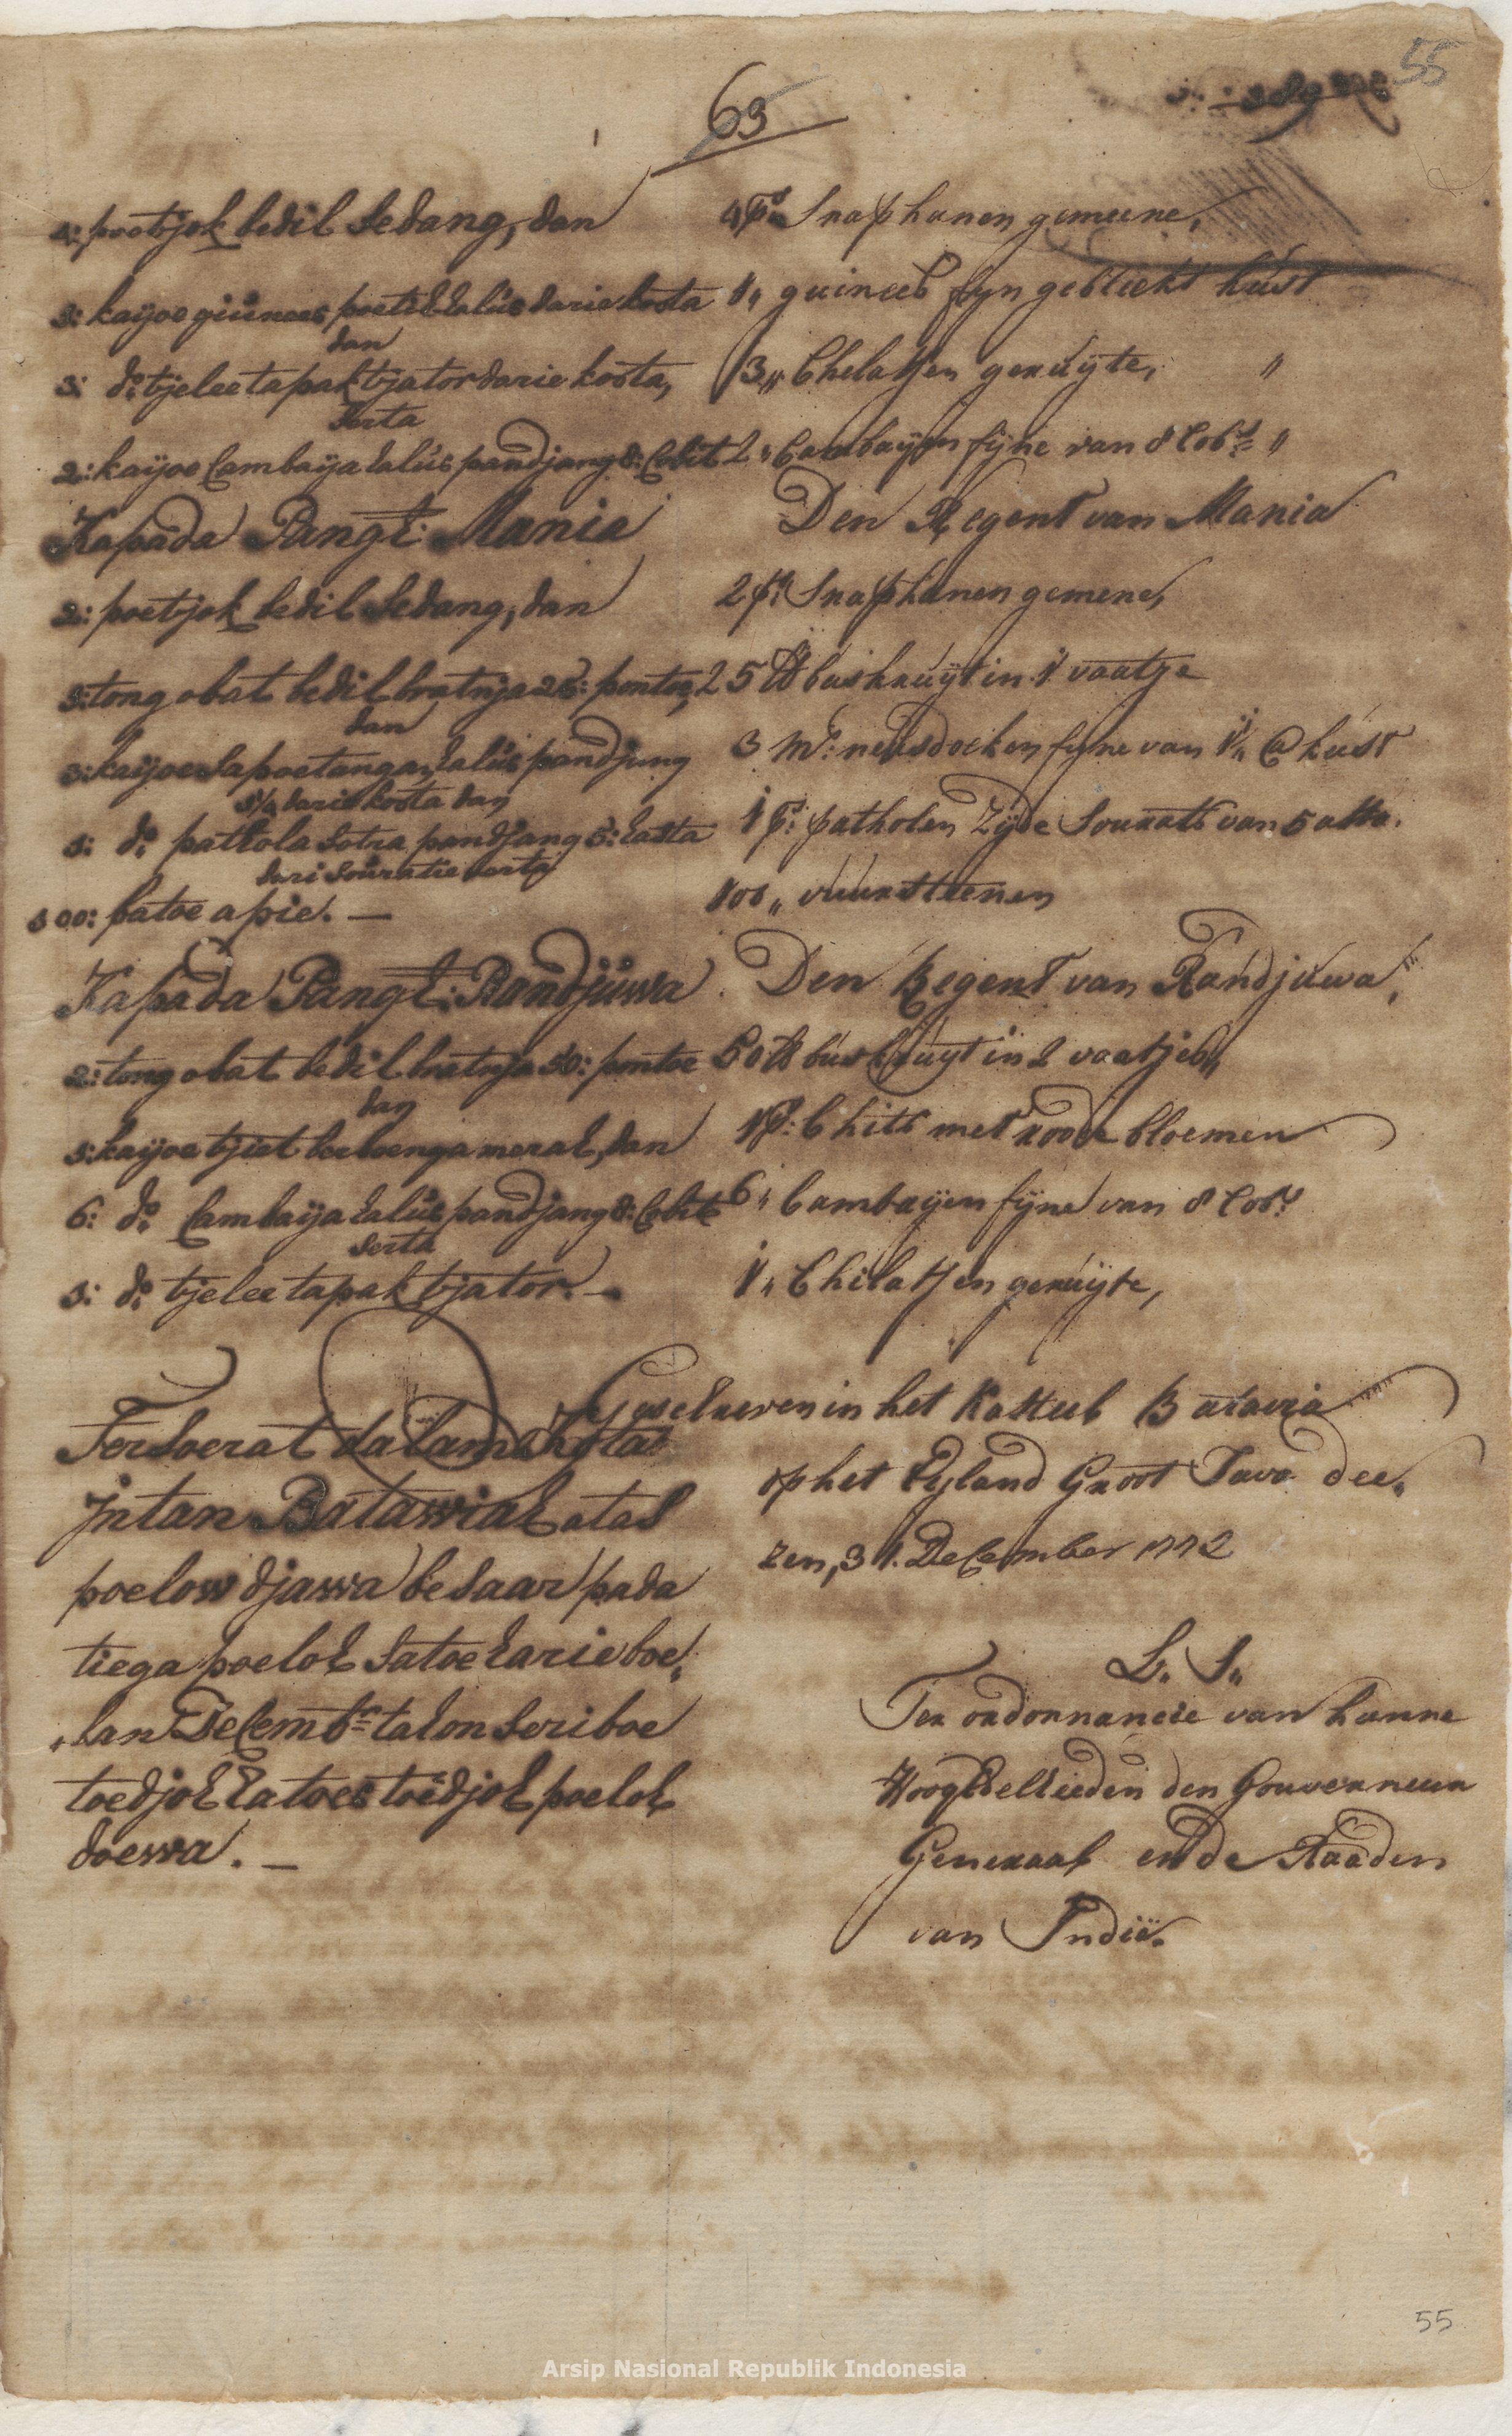 55
63
4: poetjok bedil sedang, dan
1: kaijoe giúnees poeti halús darie kosta
dan
3: do. tjelee tapak tjator darie kosta,
serta
2: kaijoe Cambaija halús pandjang 8: Cobit
Kapada Pangt: Mania
2: poetjok bedil sedang, dan
1: tong obat bedil bratnja 25: pontoe,
dan
3: kaijoe sapoetangan halús pandjang
darie kosta dan
1: do. pathola sotra pandjang 5: hasta
dari Souratie serta
100: batoe apie. —
Kapada Pangt: Randjúwa
2: tong obat bedil bratnja 50: pontoe
dan
1: kaijoe tjiet boenga merah, dan
6: do. Cambaija halús pandjang 8: Cobit
serta
1: do. tjelee tapak tjator. —
Tersoerat dalam Kota
Jntan Batawiah atas
poelow djawa besaar pada
tiega poeloh satoe harie boe„
„lan Decembr. tahon seriboe
toedjoh ratoes toedjoh poeloh
doewa. —
4 ps. Snaphanen gemeene,
1 „ guinees fyn gebleekt kust
3 „ Chelassen geruijte, „
2 „ Cambaijen fijne van 8 Cobs. „
Den Regent van Mania
2 ps: Snaphanen gemene,
25 lb buskruijt in 1 vaatje
3 ps: neusdoeken fijne van 1 „ @ kust
1 ps: patholen Zijde Souratts van 5 asta.
100 „ vuursteenen
Den Regent van Randjuwa,
50 lb buskruijt in 2 vaatjes,
1 ps: Chits met roode bloemen
6 „ Cambaijen fijne van 8 Cobs.
1 „ Chilassen geruijte,
Geschreven in het Kasteel Batavia
op het Eyland Groot Java dee„
zen, 31. December 1772
L. S.
Ter ordonnancie van hunne
Hoog Edelheeden den Gouverneur
Generaal en de Raaden
van Indië.
55
Arsip Nasional Republik Indonesia